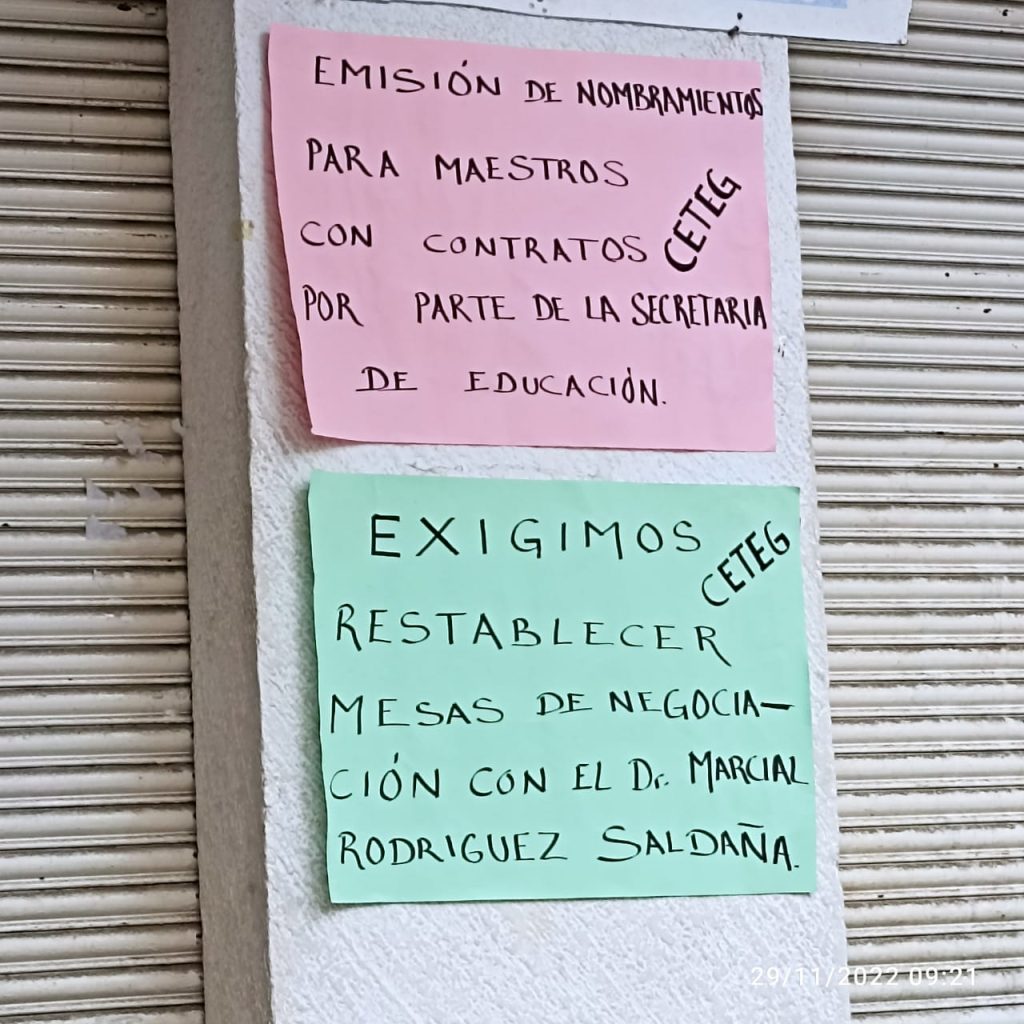 EMISIÓN DE NOMBRAMIENTOS
PARA MAESTROS
CON CONTRATOS
POR PARTE DE LA SECRETARIA
DE EDUCACIÓN.
CETEG
EXIGIMOS
RESTABLECER
MESAS DE NEGOCIA-
CIÓN CON EL Dr. MARCIAL
RODRIGUEZ SALDAÑA.
CETEG
29/11/2022 09:21